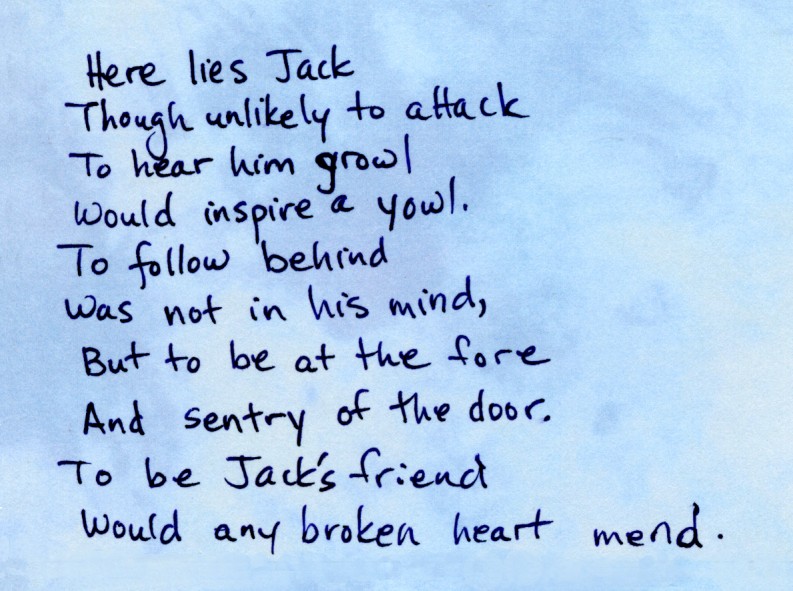 Here lies Jack
Though unlikely to attack
To hear him growl
Would inspire a yowl.
To follow behind
Was not in his mind,
But to be at the fore
And sentry of the door.
To be Jack's friend
Would any broken heart mend.